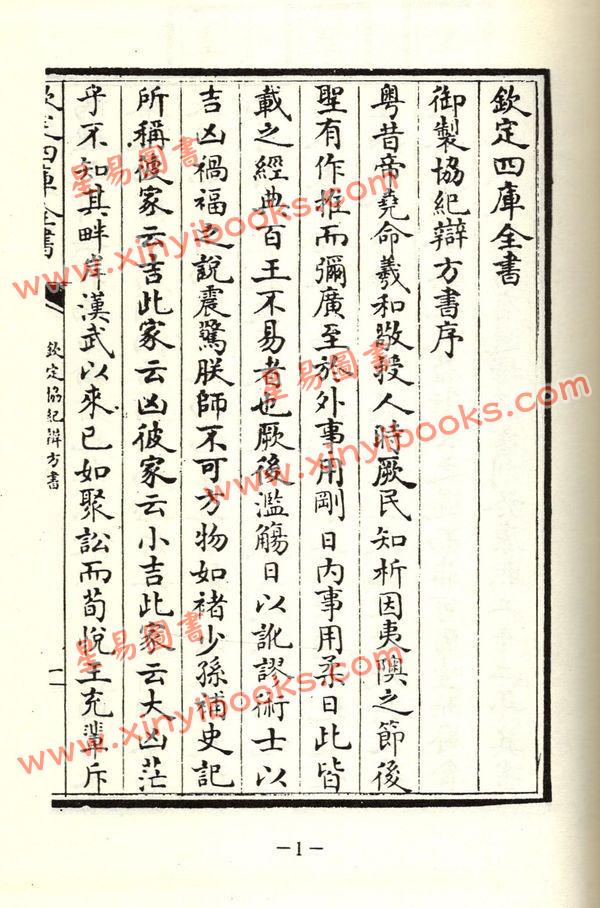 欽定四庫全書
御製協紀辯方書序
粤昔帝堯命羲和敬授人時厥民知析因夷隩之節後
聖有作推而彌廣至於外事用剛日內事用柔日此皆
載之經典百王不易者也厥後濫觴日以訛謬術士以
吉凶禍福之說震驚朕師不可方物如褚少孫補史記
所稱彼家云吉此家云凶彼家云小吉此家云大凶茫
乎不知其畔岸漢武以來已如聚訟而荀悅王充輩斥
欽定四庫全書
欽定協紀辯方書
一
—1—
星易圖書
www.xinyibooks.com
星易圖書
www.xinyibooks.com
星易圖書
www.xinyibooks.com